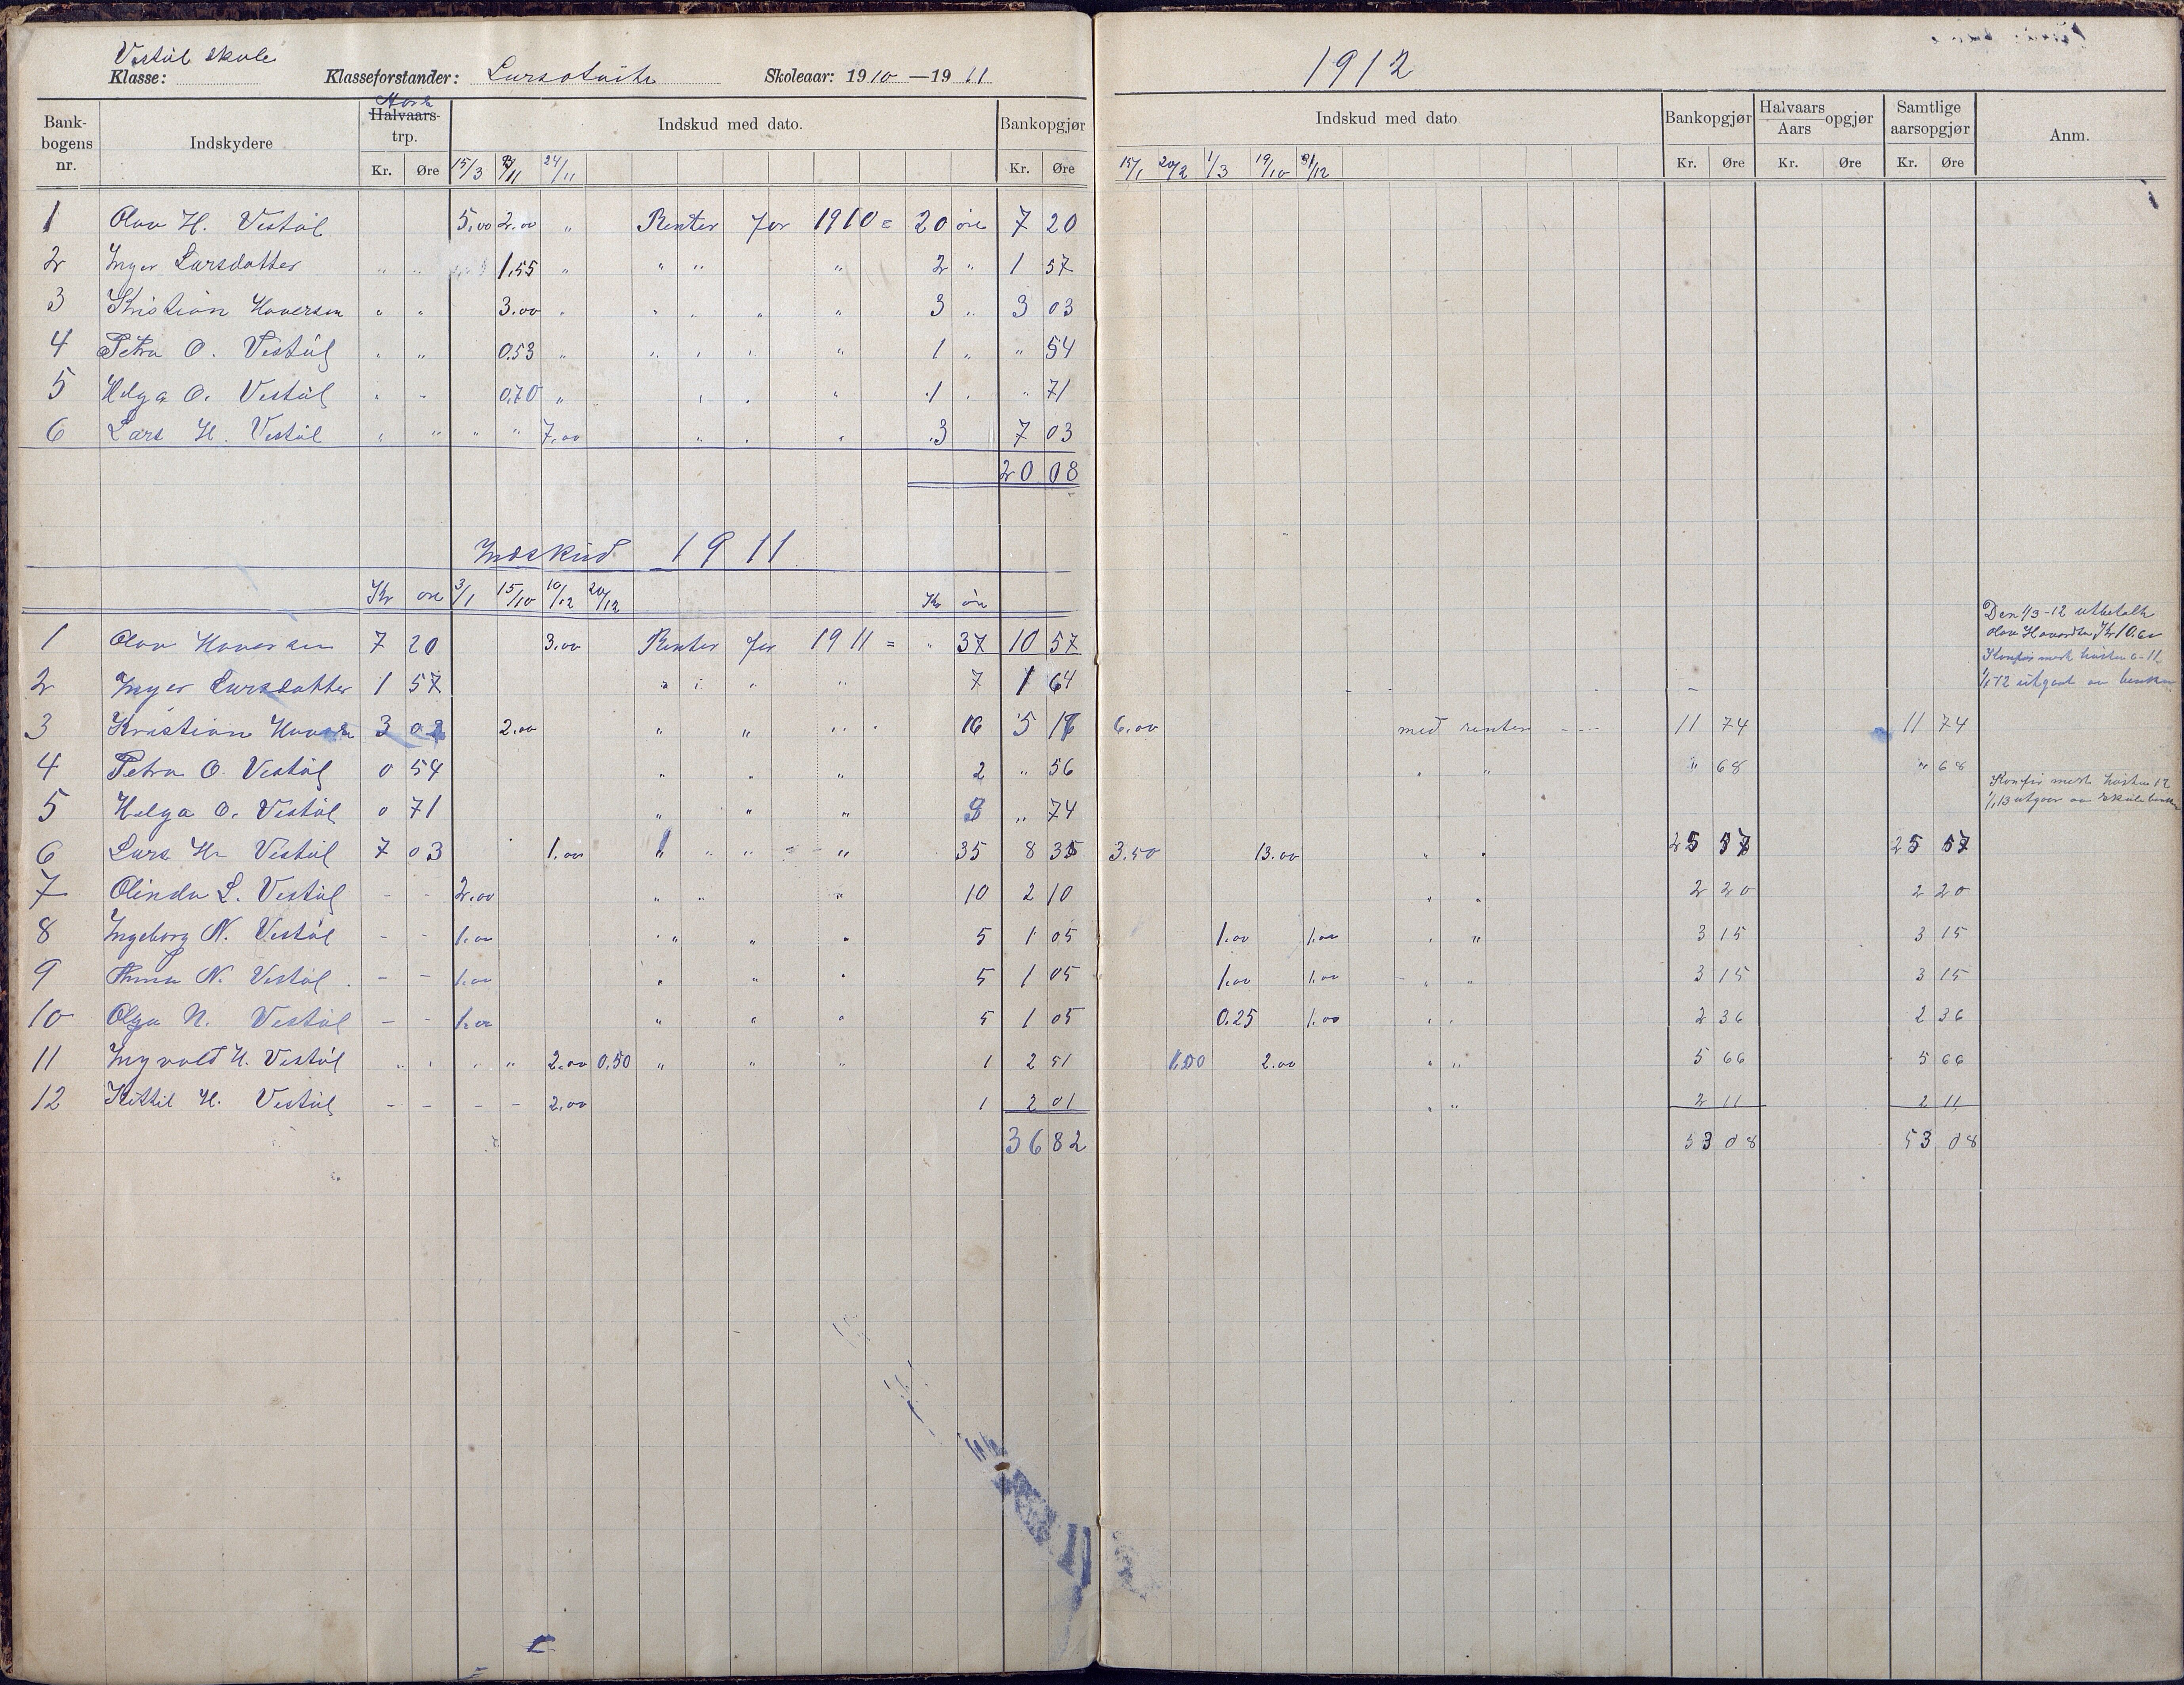 Vestøl skole
Klasse: Klasseforstander: Skoleaar: 1910—1911
Bank-bogens nr. Indskydere Halvaars-trp. Indskud med dato. Bankopgjør
Kr. Øre 15/3 24/11 Kr. Øre
1 Olav H. Vestøl 5.00 2.00 " Renter for 1910 = 20 øre 7 20
2 Inger Larsdatter " " 1.55 " " " " 2 " 1 57
3 Kristian Haversen " " 3.00 " " " " " 3 " 3 03
4 Petra O. Vestøl " " 0.53 " " " " " 1 " " 54
5 Helga O. Vestøl " " 0.70 " " " " 1 " " 71
6 Lars H. Vestøl " " " " 7.00 " " " 3 7 03
20 08
Indskud 1911
Kr øre 3/1 15/10 10/12 20/12 Kr øre
1 Olav Haversen 7 20 3.00 Renter for 1911 = " 37 10 57
2 Inger Larsdatter 1 57 " " " " 7 1 64
3 Kristian 3 03 2.00 " " " 16 5
4 Petra O. Vestøl 0 54 " " " 2 " 56
5 Helga O. Vestøl 0 71 " " " 3 " 74
6 Lars H. Vestøl 7 03 1.00 " " " " 35 8 35
7 Olinda L. Vestøl - - 2.00 " " " 10 2 10
8 Ingeborg N. Vestøl - - 1.00 " " " 5 1 05
9 Anna N. Vestøl - - 1.00 " " " 5 1 05
10 Olga N. Vestøl - - 1.00 " " " 5 1 05
11 Ingvald H. Vestøl " " " " 2.00 0.50 " " " 1 2 51
12 Kittil H. Vestøl - - - - 2.00 1 2 01
36 82
1912
Indskud med dato Bankopgjør Halvaars Aars opgjør Samtlige aarsopgjør Anm.
15/1 20/2 1/3 19/10 31/12 Kr. Øre Kr. Øre Kr. Øre
Den 1/3-12 utbetalt
6.00 med renter 11 74 11 74
" " " 68 " 68
3.50 13.00 " " 25 57 25 57
" " 2 20 2 20
1.00 1.00 " " 3 15 3 15
1.00 1.00 " " 3 15 3 15
0.25 1.00 " " 2 36 2 36
1.00 2.00 " " 5 66 5 66
" " 2 11 2 11
53 08 53 08